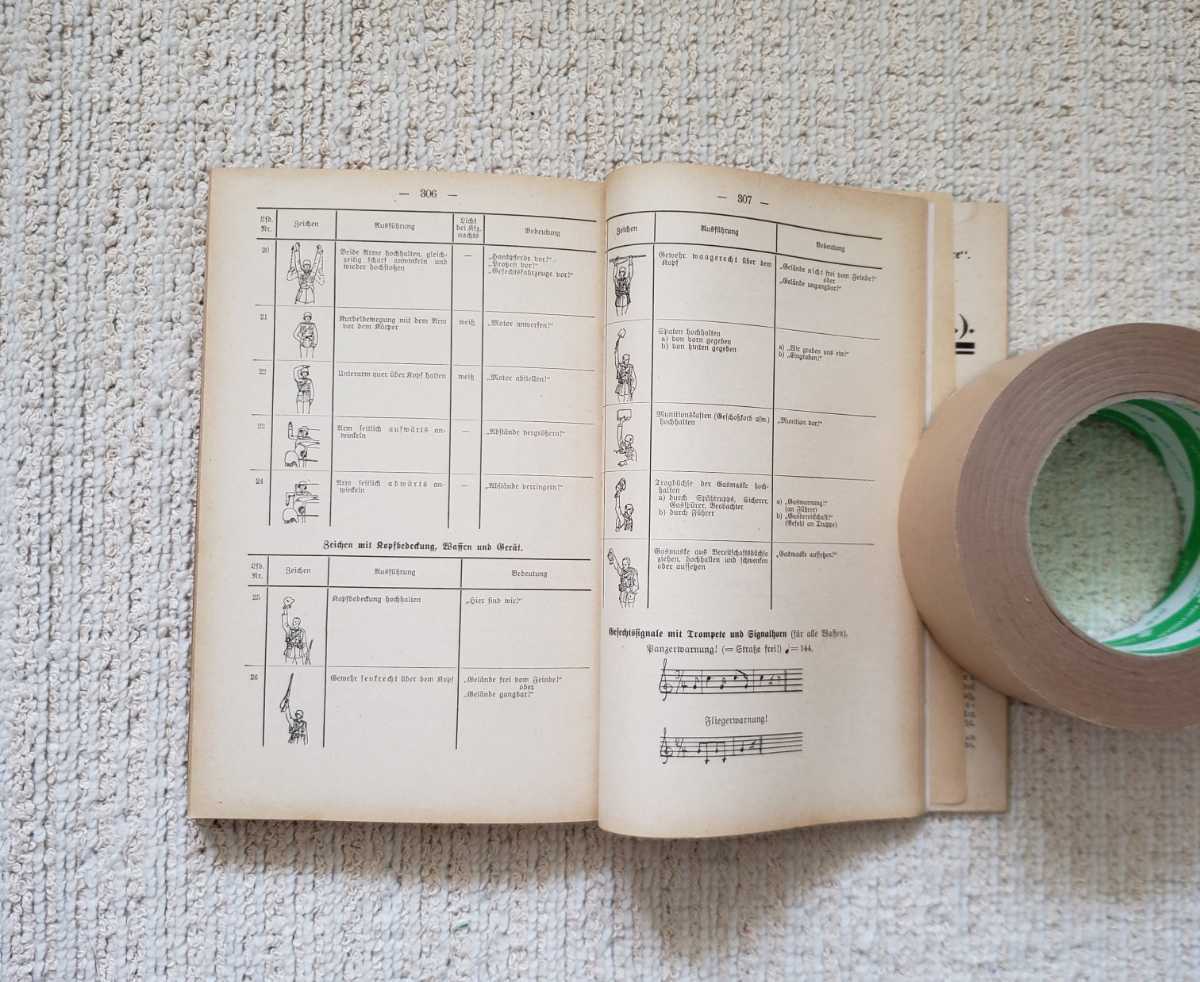 — 306 —
Lfd. Nr. Zeichen Ausführung Licht bei Kfz. nachts Bedeutung
20 Beide Arme hochhalten, gleich- — „Handpferde vor!“
zeitig scharf anwinkeln und „Protzen vor!“
wieder hochstoßen „Gefechtsfahrzeuge vor!“
21 Kurbelbewegung mit dem Arm weiß „Motor anwerfen!“
vor dem Körper
22 Unterarm quer über Kopf halten weiß „Motor abstellen!“
23 Arm seitlich aufwärts an- — „Abstände vergrößern!“
winkeln
24 Arm seitlich abwärts an- — „Abstände verringern!“
winkeln
Zeichen mit Kopfbedeckung, Waffen und Gerät.
Lfd. Nr. Zeichen Ausführung Bedeutung
25 Kopfbedeckung hochhalten „Hier sind wir!“
26 Gewehr senkrecht über dem Kopf „Gelände frei vom Feinde!“
oder
„Gelände gangbar!“
— 307 —
Zeichen Ausführung Bedeutung
Gewehr waagerecht über dem „Gelände nicht frei vom Feinde!“
Kopf oder
„Gelände ungangbar!“
Spaten hochhalten
a) von vorn gegeben a) „Wir graben uns ein!“
b) von hinten gegeben b) „Eingraben!“
Munitionskasten (Geschoßkorb usw.) „Munition vor!“
hochhalten
Tragbüchse der Gasmaske hoch-
halten
a) durch Spähtrupps, Sicherer, a) „Gaswarnung!“
Gasspürer, Beobachter (an Führer)
b) durch Führer b) „Gasbereitschaft!“
(Befehl an Truppe)
Gasmaske aus Bereitschaftsbüchse „Gasmaske aufsetzen!“
ziehen, hochhalten und schwenken
oder aufsetzen
Gefechtssignale mit Trompete und Signalhorn (für alle Waffen).
Panzerwarnung! (= Straße frei!) ♩= 144.
Fliegerwarnung!
).